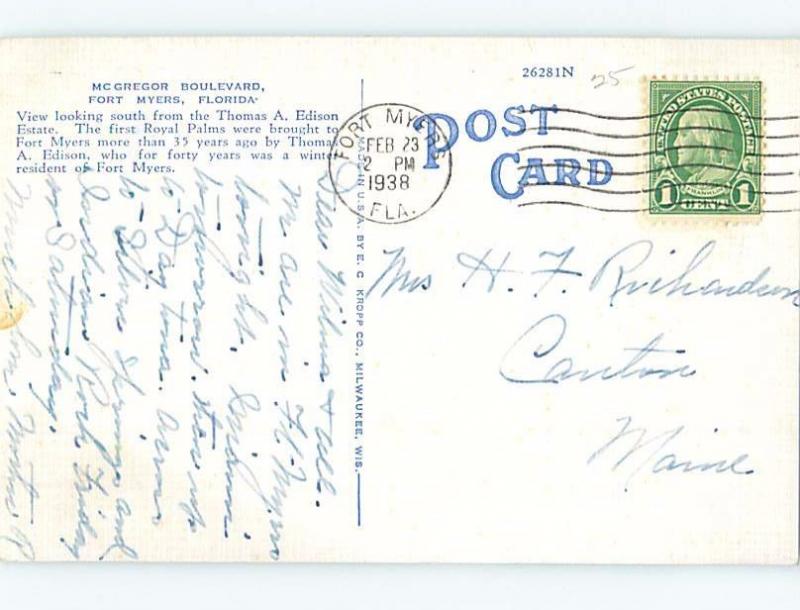 MCGREGOR BOULEVARD,
FORT MYERS, FLORIDA
View looking south from the Thomas A. Edison
Estate. The first Royal Palms were brought to
Fort Myers more than 35 years ago by Thomas
A. Edison, who for forty years was a winter
resident of Fort Myers.
26281N
25
POST
CARD
FORT MYERS
FEB 23
2 PM
1938
FLA.
UNITED STATES POSTAGE
FRANKLIN
1 CENT 1
MADE IN U.S.A. BY E. C. KROPP CO., MILWAUKEE, WIS.
Mrs H. F. Richardson
Canton
Maine
Dear Wilma & all.
We are in Ft Myers
tonight.
tomorrow, then up
to Daytona.
to Silver Springs and
Indian Rock Friday
or Saturday.
Much love,